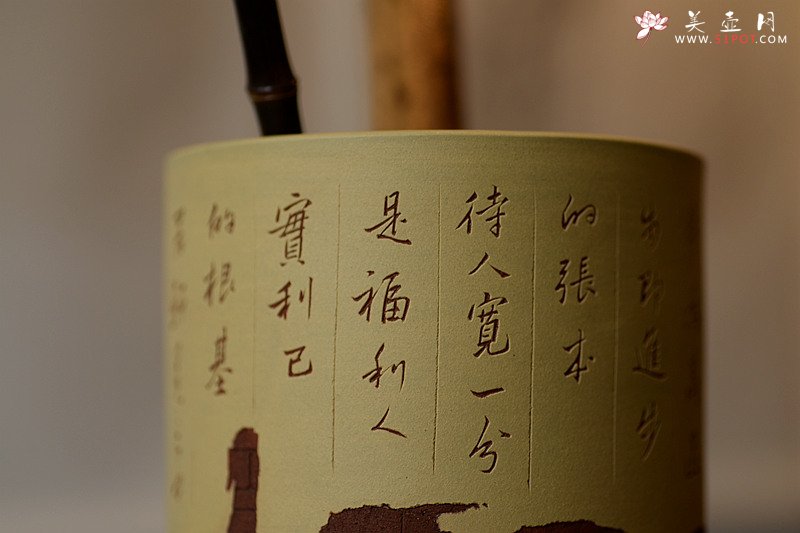 步即進步
的張本
待人寬一分
是福利人
實利己
的根基
美壶网
WWW.51POT.COM